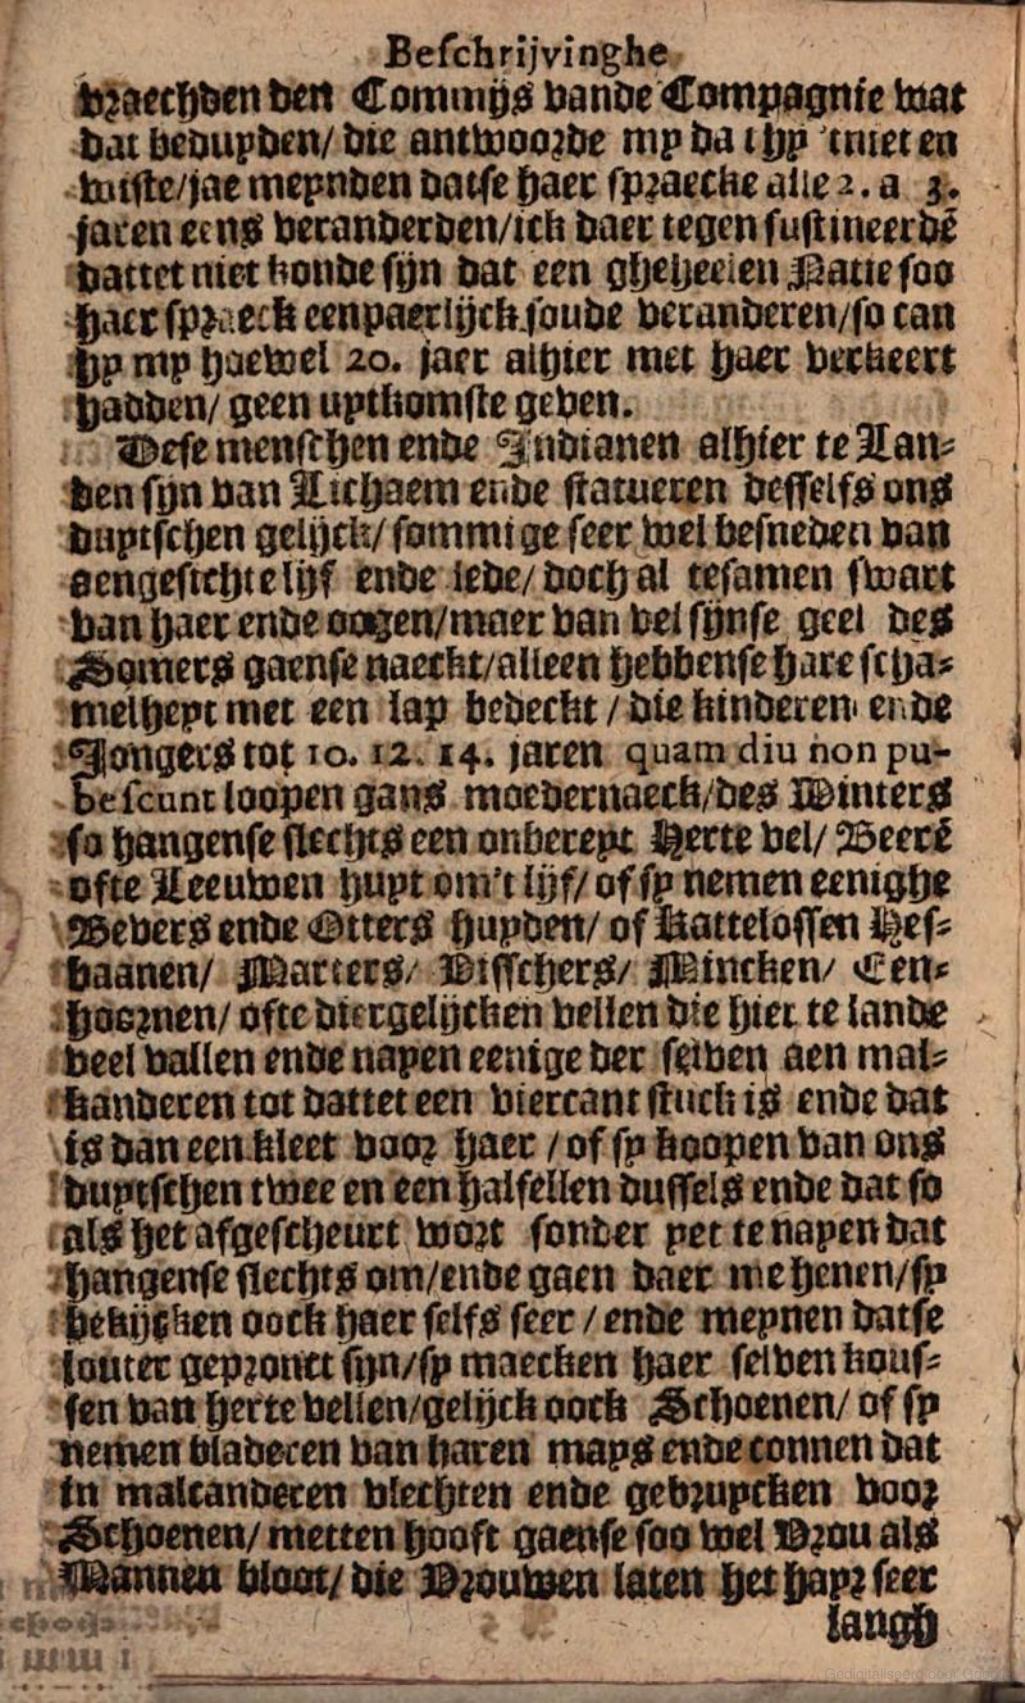 Beſchrijvinghe
vraechden den Commijs vande Compagnie wat
dat beduyden/ die antwoorde my dat hy 'tniet en
wiste/jae meynden datse haer spraecke alle 2. a 3.
jaren eens veranderden/ick daer tegen sustineerdē
dattet niet konde sijn dat een gheheelen Natie soo
haer spraeck eenpaerlijck soude veranderen/so can
hy my hoewel 20. jaer alhier met haer verkeert
hadden/ geen uytkomste geven.
Dese menschen ende Indianen alhier te Lan-
den sijn van Lichaem ende statueren desselfs ons
duytschen gelijck/ sommige seer wel besneden van
aengesichte lijf ende lede/ doch al tesamen swart
van haer ende oogen/maer van vel sijnse geel des
Somers gaense naeckt/alleen hebbense hare scha-
melheyt met een lap bedeckt / die kinderen ende
Jongers tot 10. 12. 14. jaren quam diu non pu-
beſcunt loopen gans moedernaeck/des Winters
so hangense slechts een onbereyt Herte vel/ Beerē
ofte Leeuwen huyt om't lijf/ of sy nemen eenighe
Bevers ende Otters huyden/ of Kattelossen Hes-
baanen/ Marters/ Visschers/ Mincken/ Een-
hoornen/ ofte diergelijcken vellen die hier te lande
veel vallen ende nayen eenige der selven aen mal-
kanderen tot dattet een viercant stuck is ende dat
is dan een kleet voor haer / of sy koopen van ons
duytschen twee en een half ellen duffels ende dat so
als het afgescheurt wort sonder yet te nayen dat
hangense slechts om/ende gaen daer me henen/sy
bekijcken oock haer selfs seer / ende meynen datse
louter gepronct sijn/sy maecken haer selven kous-
sen van herte vellen/gelijck oock Schoenen/ of sy
nemen bladeren van haren mays ende connen dat
in malcanderen vlechten ende gebruycken voor
Schoenen/ metten hooft gaense soo wel Vrou als
Mannen bloot/ die Vrouwen laten het hayr seer
langh